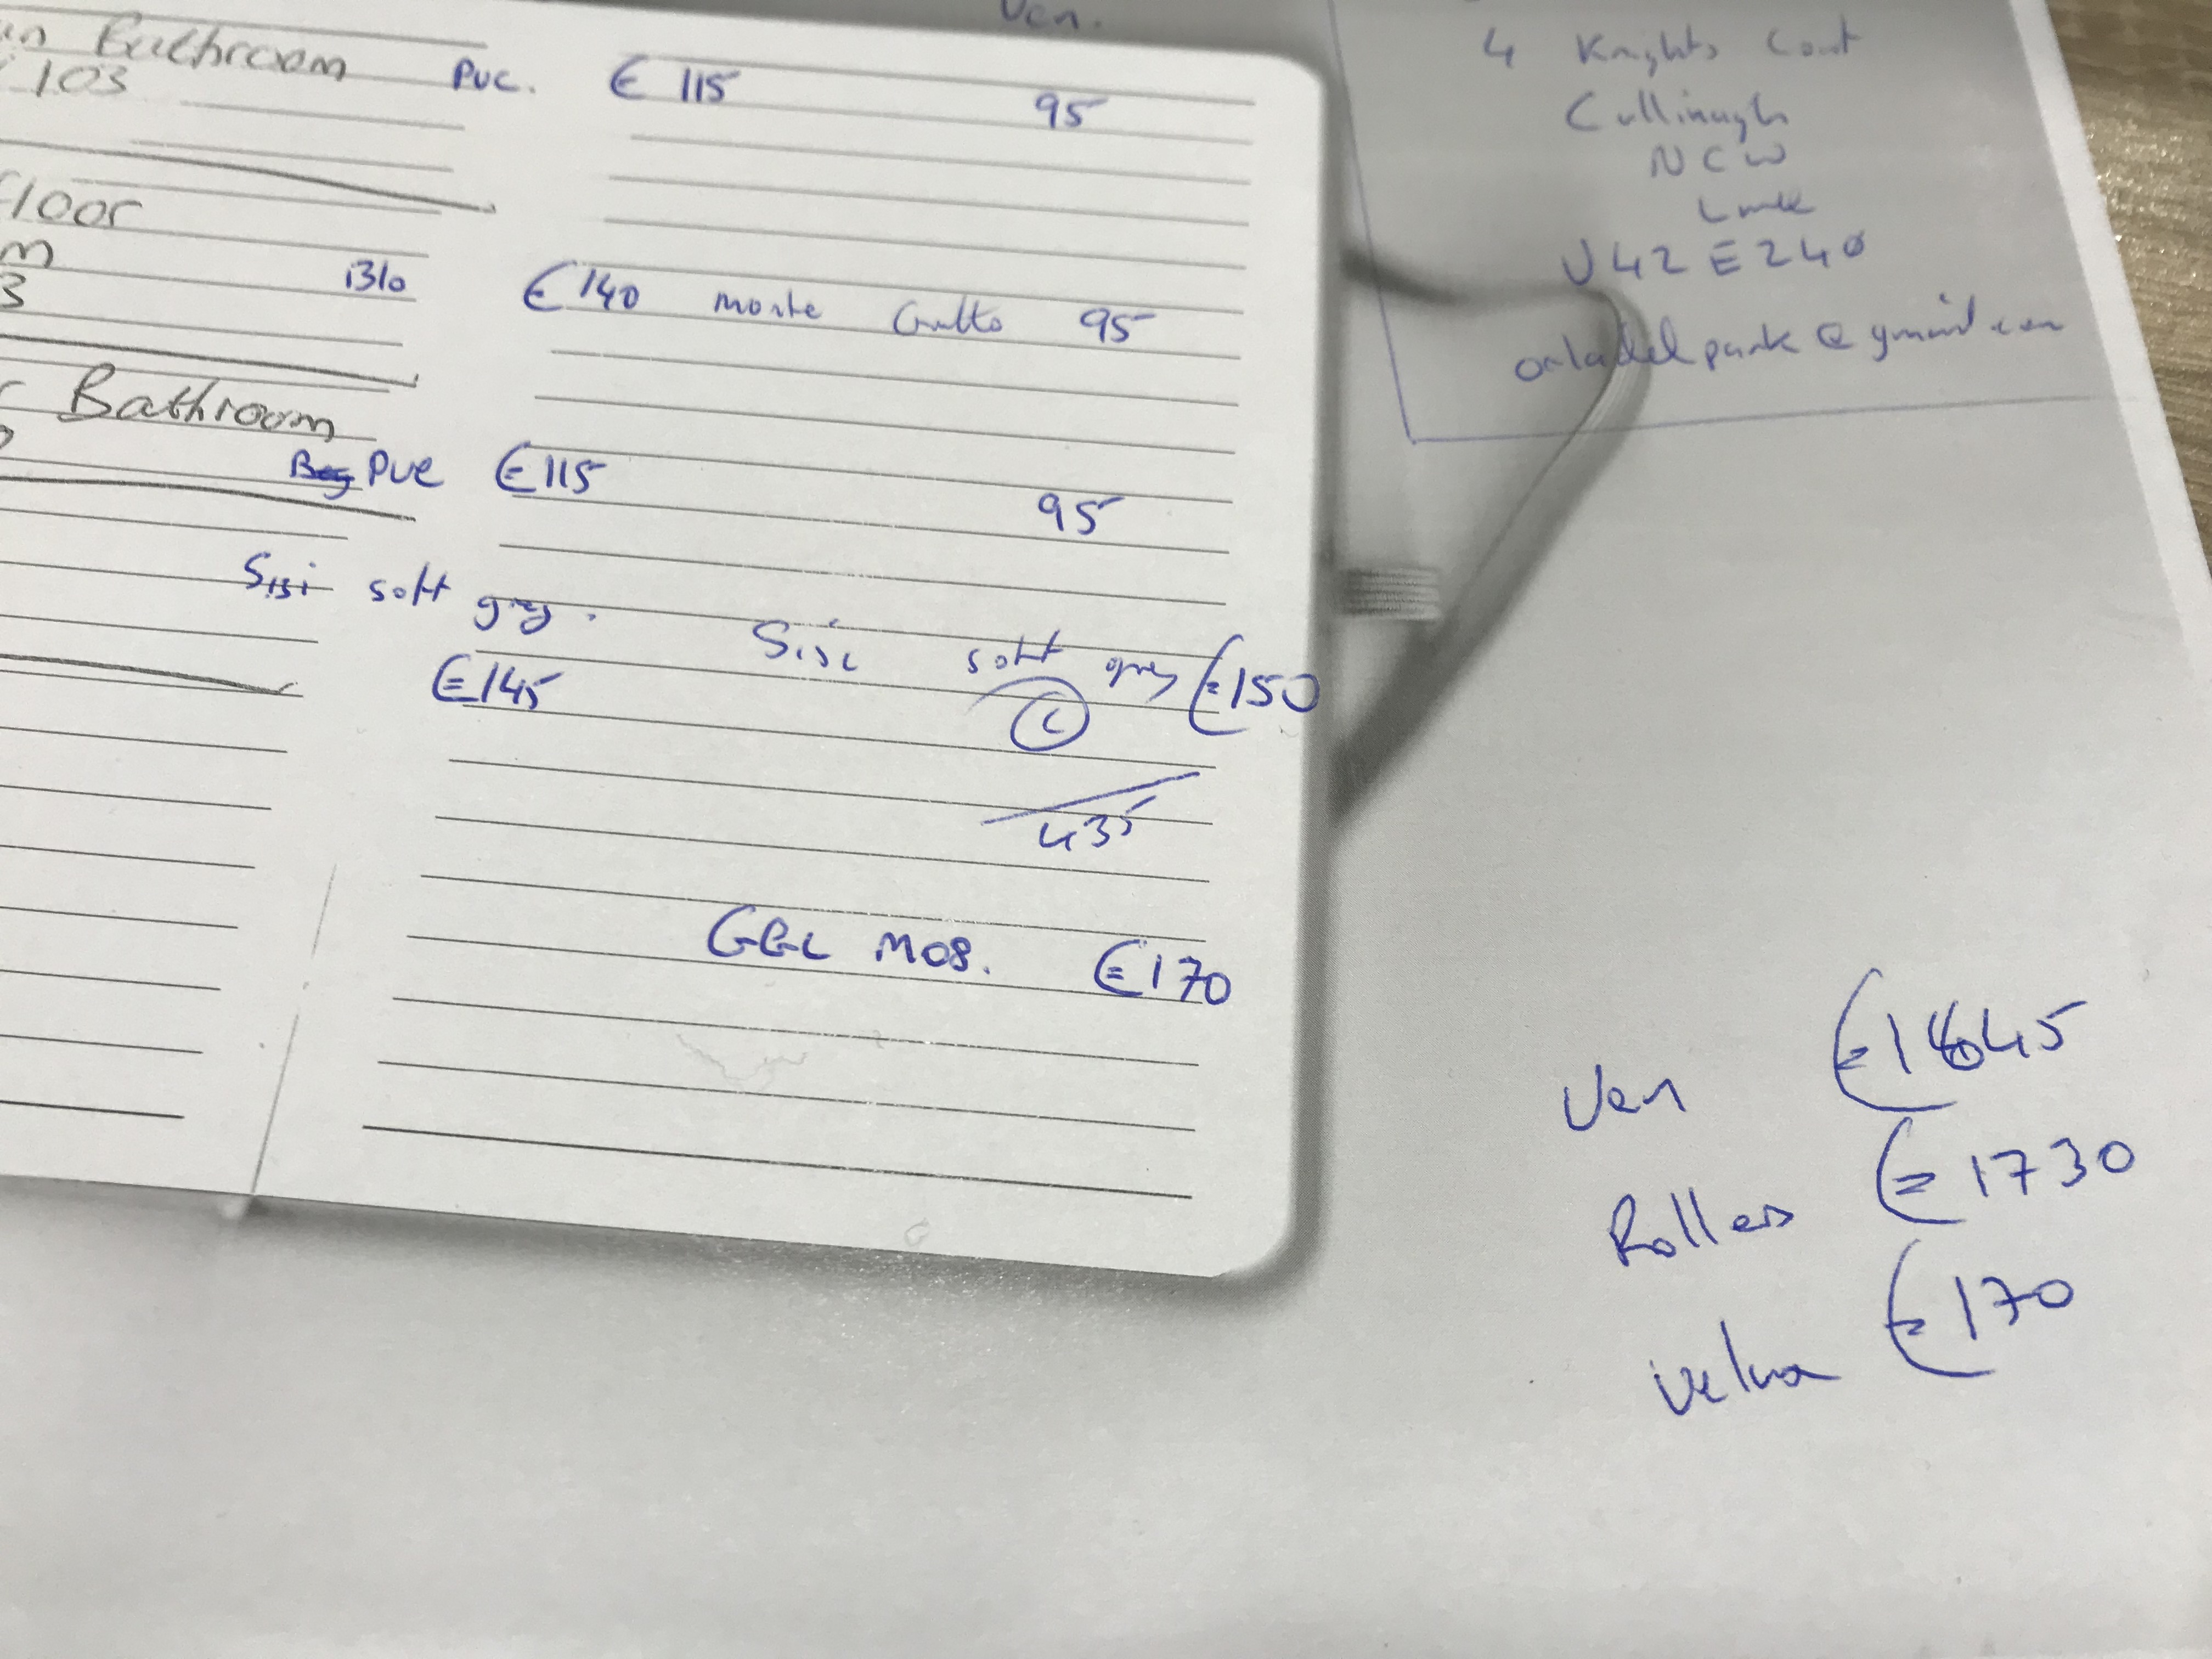 Ven.
in Bathroom PVC. € 115 95
103
floor
m
3 Blo €140 monte Gutto 95
Bathroom
PVC €115
95
Sisi soft grey.
Sisi soft grey €150
€145
C
435
GGL M08. €170
4 Knights Court
Cullinagh
NCW
Lmk
V42 E240
orladelpark@gmail.com
Ven €1645
Rollers €1730
velux €170